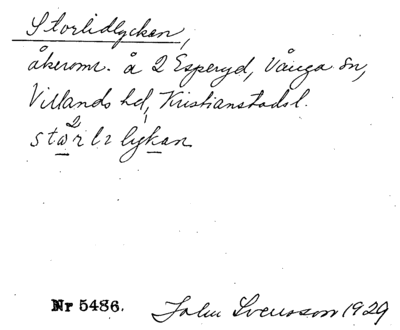 Storlidlyckan,
åkeromr. å 2 Esperyd, Vånga sn,
Villands hd, Kristianstads l.
lykan
Nr 5486. John Svensson 1929